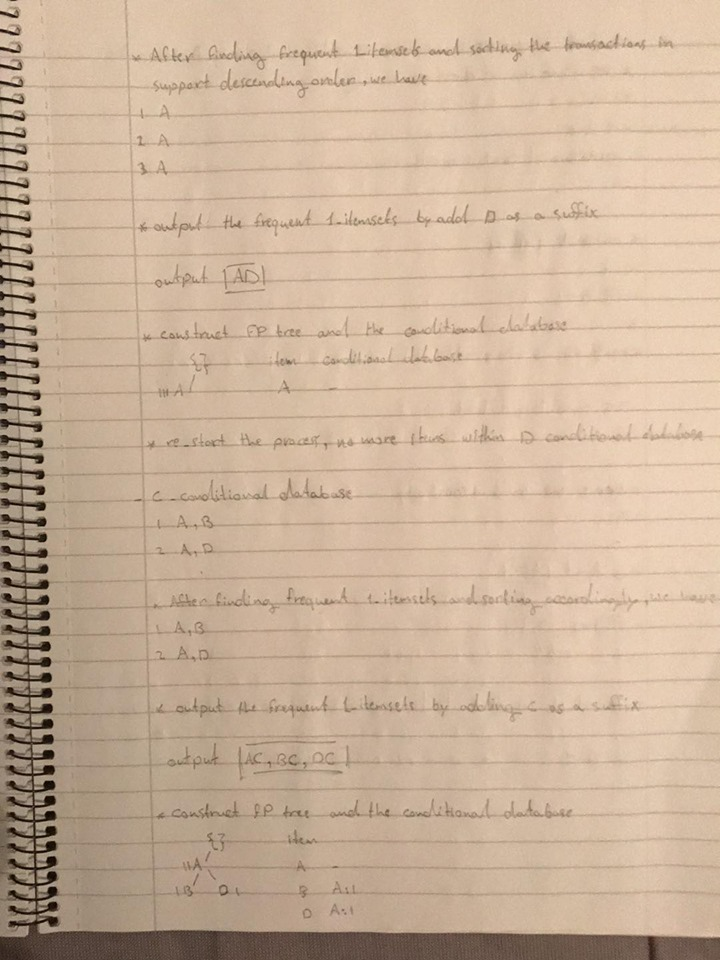 * After finding frequent 1-itemsets and sorting the transactions in
support descending order, we have
1 A
2 A
3 A
* output the frequent 1-itemsets by add D as a suffix
output |AD|
* construct FP tree and the conditional database
{} item conditional database
III A A -
* re-start the process, no more items within D conditional database
- C-conditional database
1 A, B
2 A, D
* After finding frequent 1-itemsets and sorting accordingly, we have
1 A, B
2 A, D
* output the frequent 1-itemsets by adding C as a suffix
output |AC, BC, DC|
* construct FP tree and the conditional database
{} item
II A A -
I B D I B A:1
D A:1